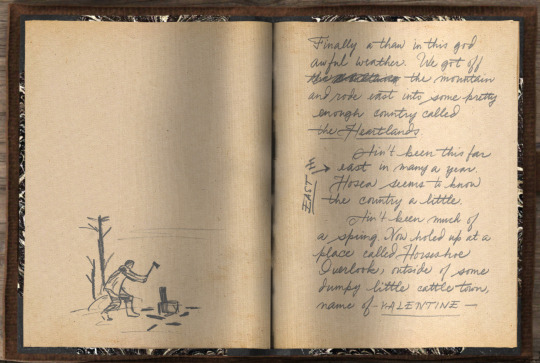 Finally a thaw in this god
awful weather. We got off
the mountain
and rode east into some pretty
enough country called
the Heartlands
Ain't been this far
east in many a year.
Hosea seems to know
the country a little.
EAST
Ain't been much of
a spring. Now holed up at a
place called Horseshoe
Overlook, outside of some
dumpy little cattle town,
name of - VALENTINE -